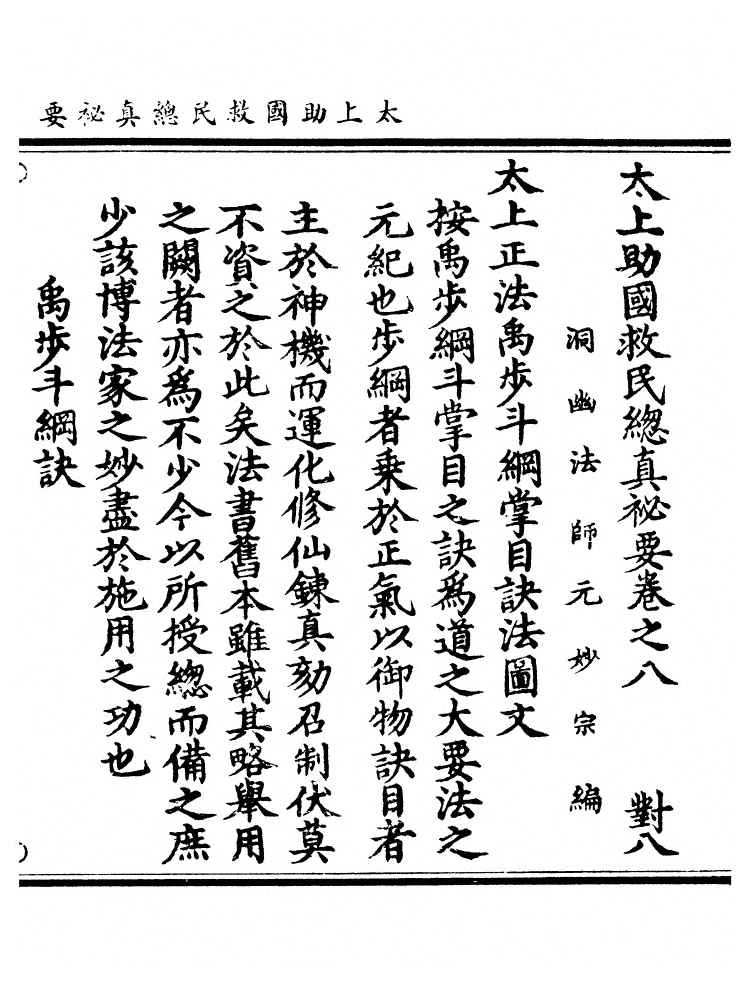 太上助國救民總真祕要
太上助國救民總真祕要卷之八 對八
洞幽法師元妙宗編
太上正法禹步斗綱掌目訣法圖文
按禹步綱斗掌目之訣為道之大要法之
元紀也步綱者乗於正氣以御物訣目者
主於神機而運化修仙鍊真劾召制伏莫
不資之於此矣法書舊本雖載其略舉用
之闕者亦為不少今以所授總而備之庶
少該博法家之妙盡於施用之功也
禹步斗綱訣